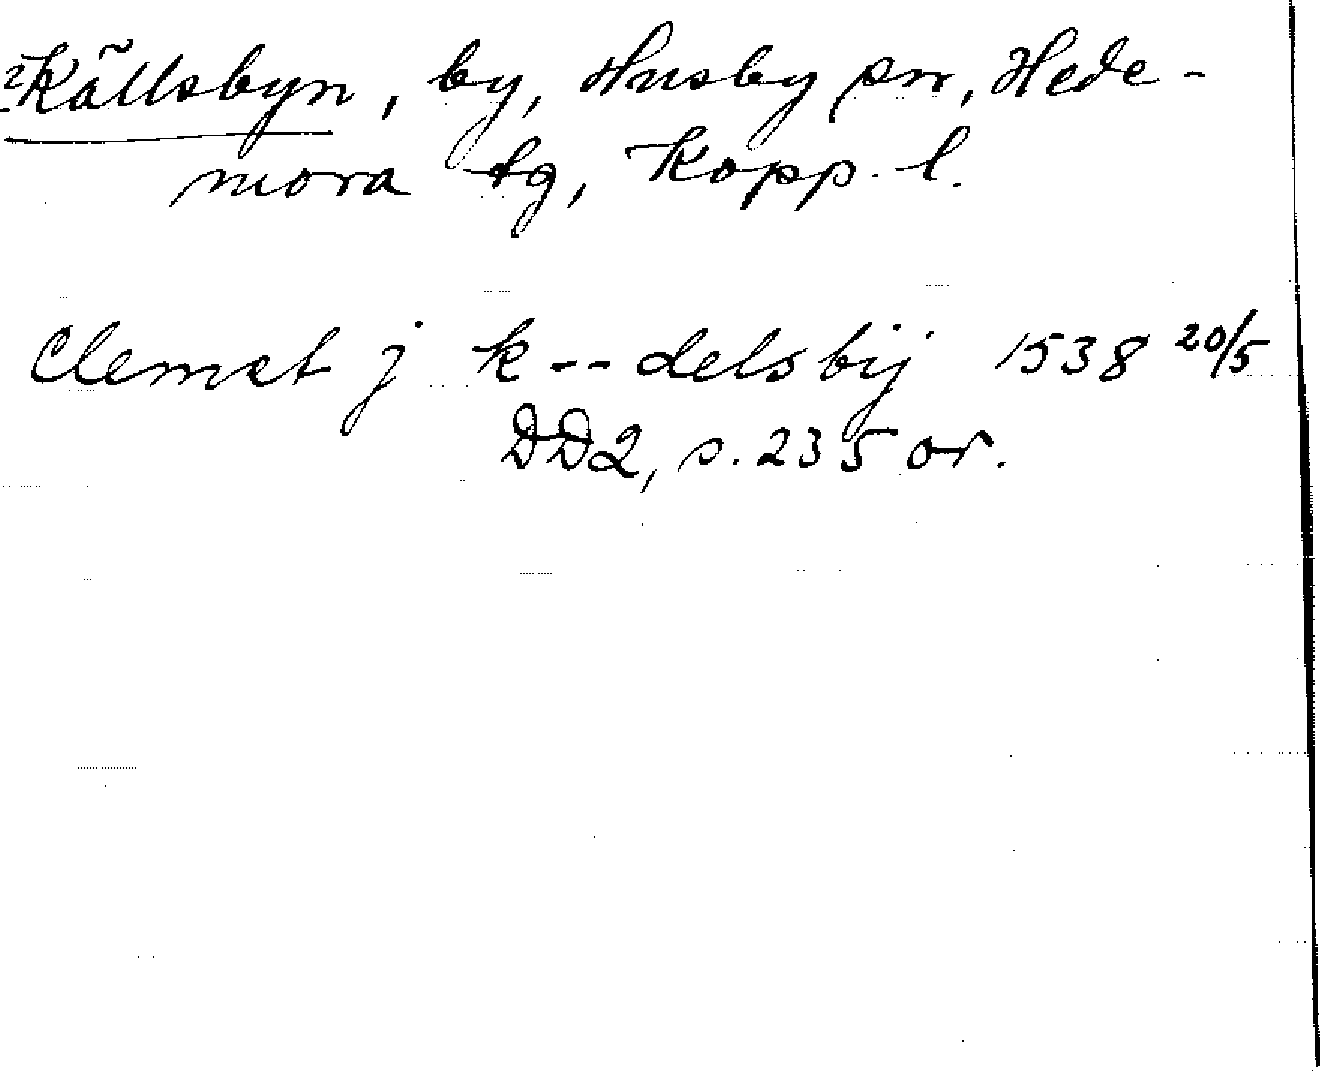 Källsbyn, by, Husby sn, Hede-
mora tg, Kopp. l.
Clemet j k--delsbij 1538 20/5
DD2, s. 235 or.